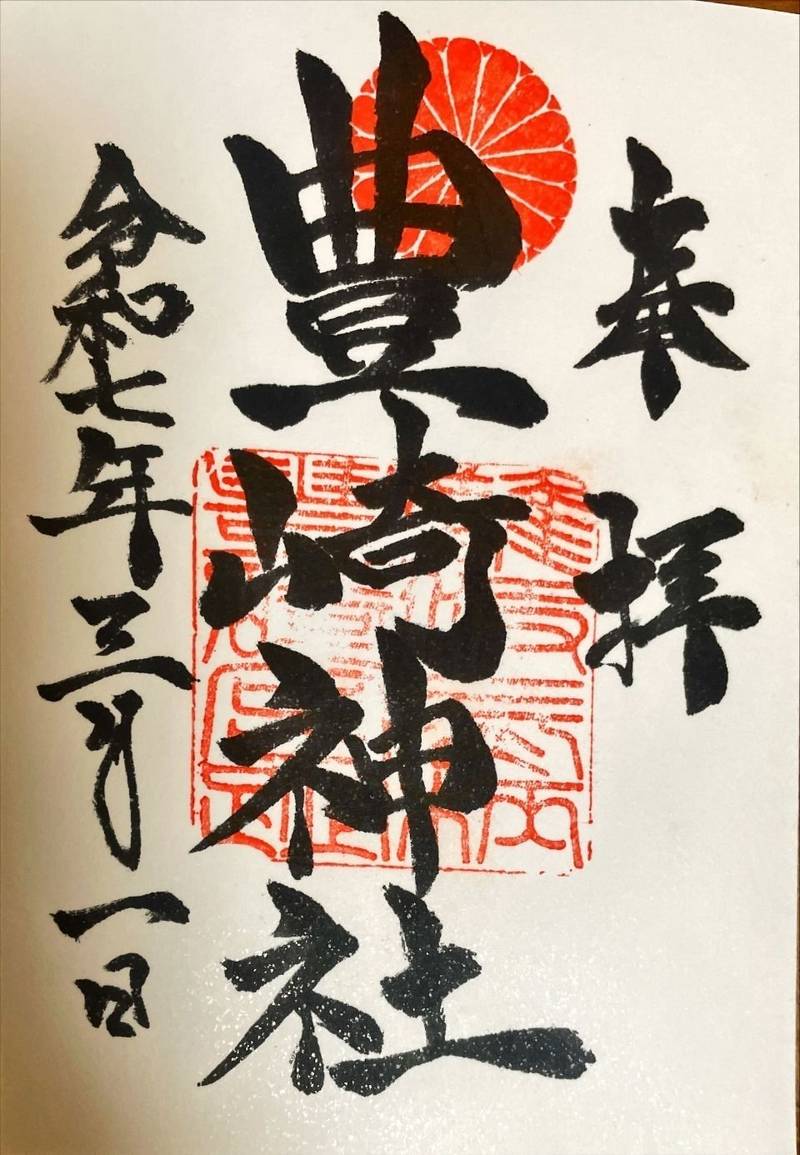 奉拝
豊崎神社
令和七年三月一日